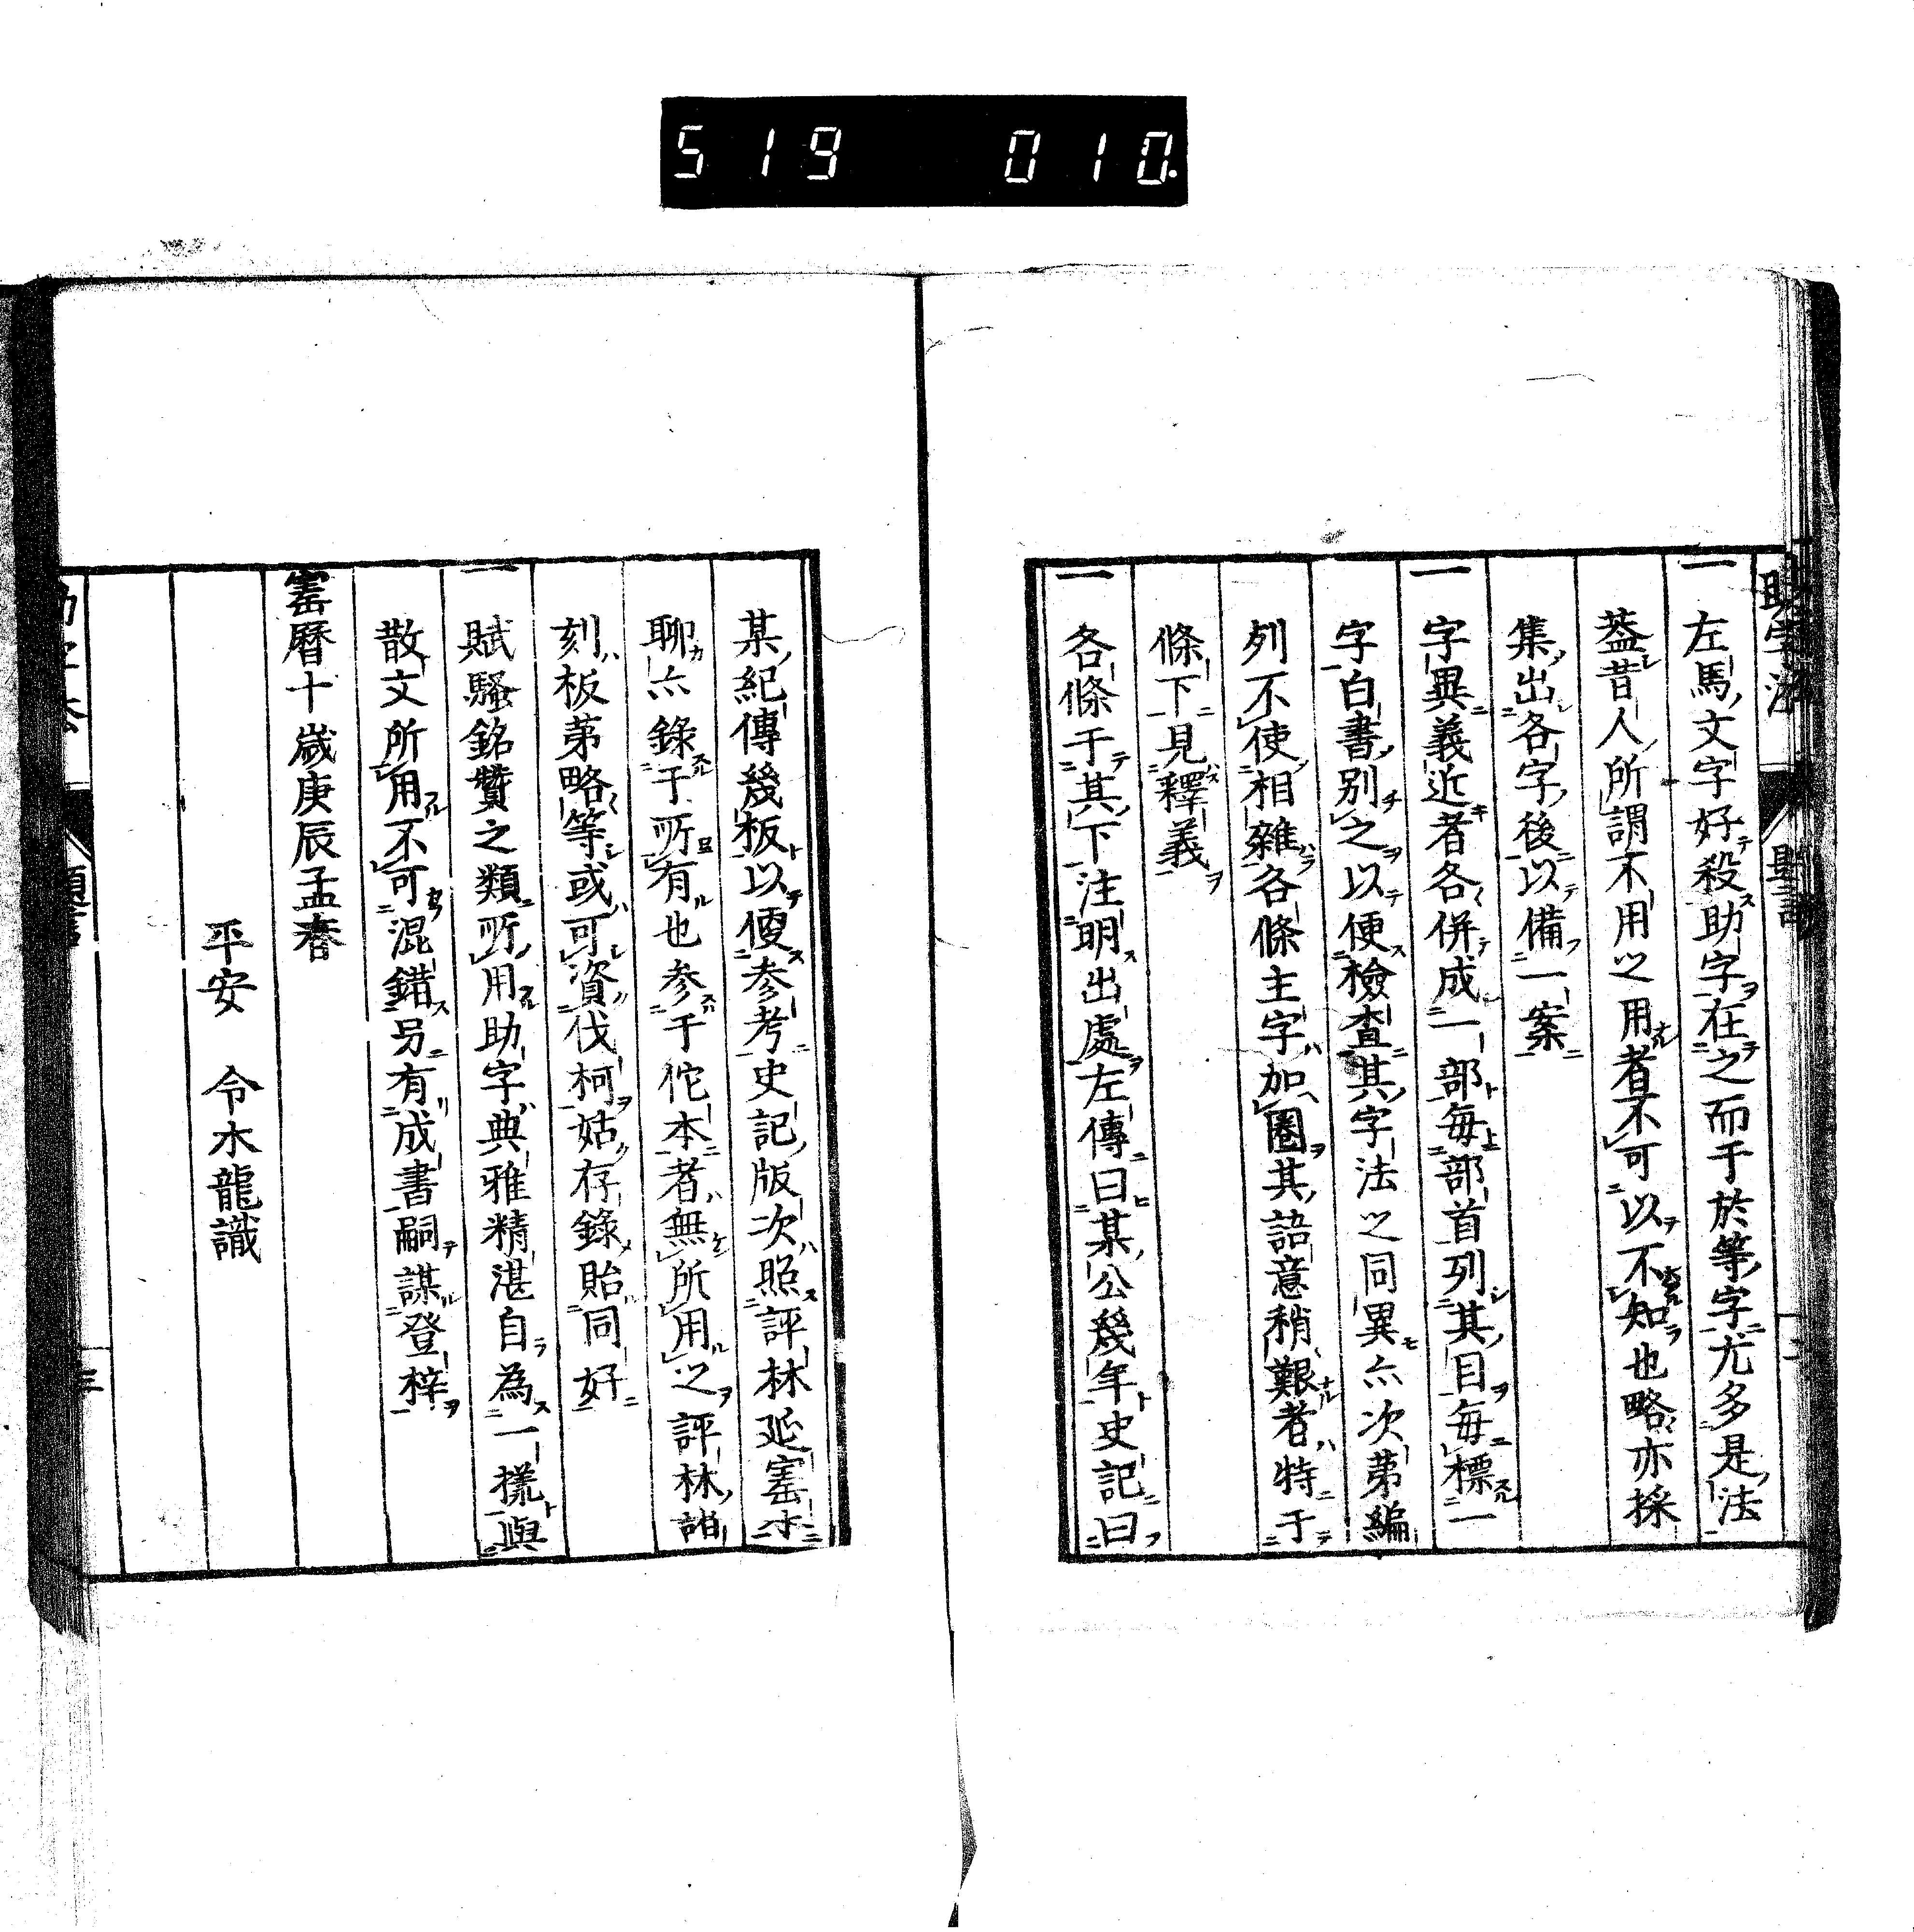 519 010.
一左馬文字好殺助字在之而于於等字尤多是法
葢昔人所謂不用之用者不可以不知也略亦採
集出各字後以備一案
一字異義近者各併成一部每部首列其目每標一
字白書別之以便檢査其字法之同異亦次第編
列不使相雜各條主字加圈其語意稍艱者特于
條下見釋義
一各條于其下注明出處左傳曰某公幾年史記曰
某紀傳幾板以便参考史記版次照評林延寚
聊亦錄于所有也参于佗本者無所用之評林
刻板第略等或可資伐柯姑存錄貽同好
一賦騷銘贊之類所用助字典雅精湛自為一㨾與
散文所用不可混錯另有成書嗣謀登梓
寚曆十歲庚辰孟春
平安 令木龍識
助字法
三